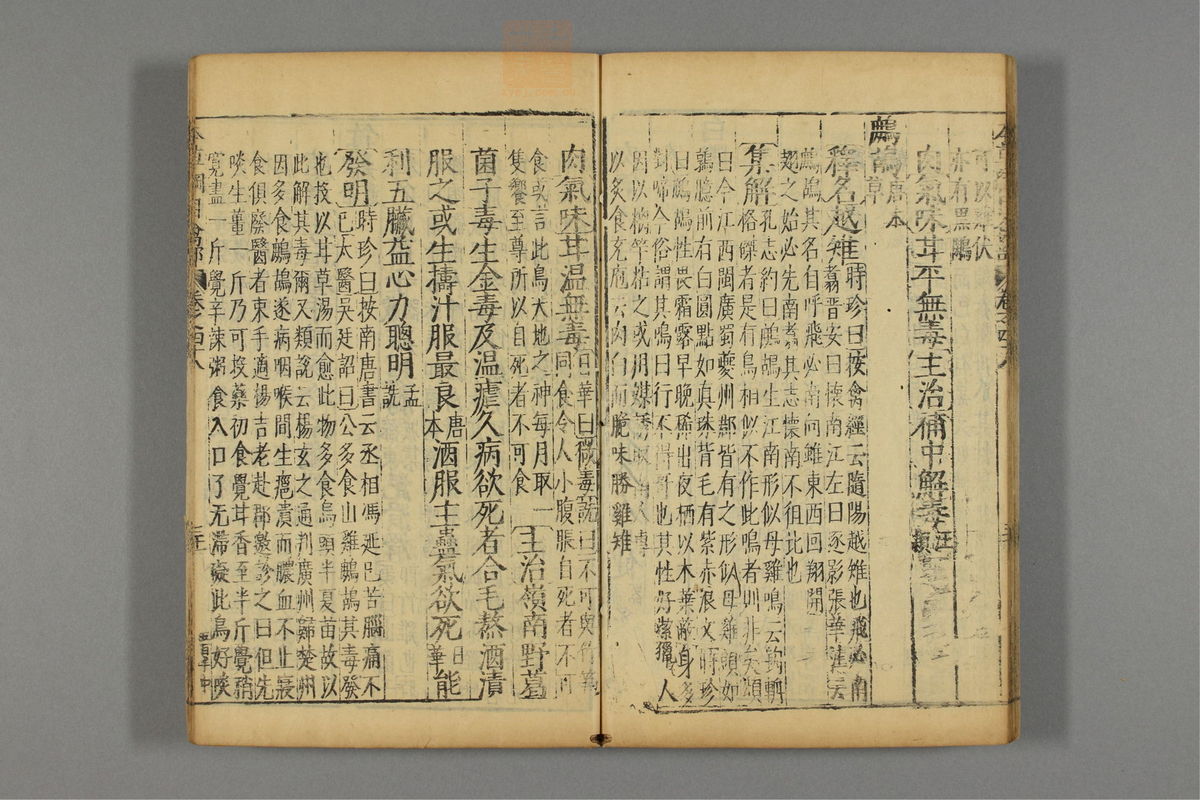 可以
亦有黑鷴
肉氣味甘平無毒主治補中解毒汪穎
鷓鴣唐本草
釋名越雉時珍曰按禽經云隨陽越雉也飛必南
翥晉安曰懷南江左曰逐影張華註云
鷓鴣其名自呼飛必南向雖東西回翔開
翅之始必先南翥其志懷南不徂北也
集解孔志約曰鷓鴣生江南形似母雞鳴云鉤輈
格磔者是有鳥相似不作此鳴者則非矣頌
曰今江西閩廣蜀夔州郡皆有之形似母雞頭如
鶉臆前有白圓點如真珠背毛有紫赤浪文時珍
曰鷓鴣性畏霜露早晚稀出夜栖以木葉蔽身多
對啼今俗謂其鳴曰行不得哥也其性好潔獵人
因以𪐹竿粘之或用媒誘取南人
以炙食充庖云肉白而脆味勝雞雉
肉氣味甘温無毒日華曰微毒詵曰不可與竹筍
同食令人小腹脹自死者不可
食或言此鳥天地之神每月取一
隻饗至尊所以自死者不可食主治嶺南野葛
菌子毒生金毒及温瘧久病欲死者合毛熬酒漬
服之或生擣汁服最良唐本酒服主蠱氣欲死日華能
利五臟益心力聰明孟詵
發明時珍曰按南唐書云丞相馮延巳苦腦痛不
已太醫吳廷詔曰公多食山雞鷓鴣其毒發
也投以甘草湯而愈此物多食烏頭半夏苗故以
此解其毒爾又類說云楊玄之通判廣州歸楚州
因多食鷓鴣遂病咽喉間生癰潰而膿血不止寢
食俱廢醫者束手適楊吉老赴郡邀診之曰但先
啖生薑一斤乃可投藥初食覺甘香至半斤覺稍
寬盡一斤覺辛辣粥食入口了无滯礙此鳥好啖